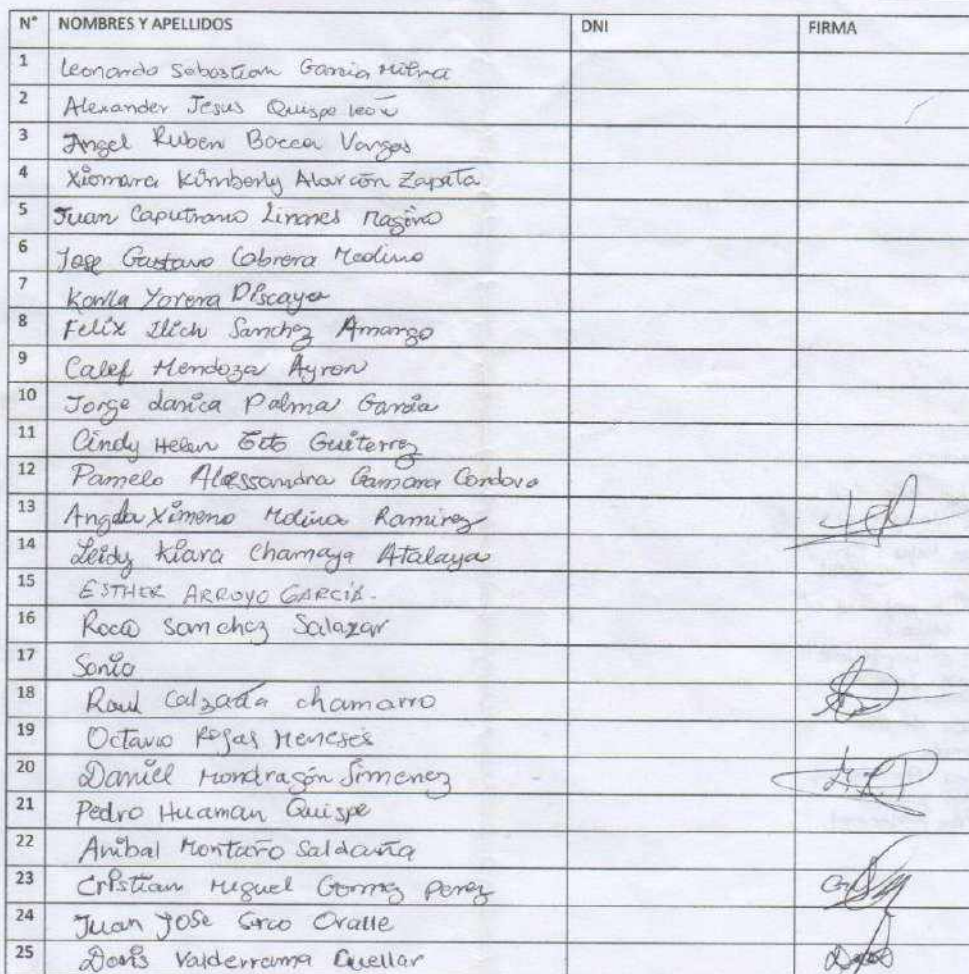 N° NOMBRES Y APELLIDOS DNI FIRMA
1 Leonardo Sebastian Garcia
2 Alexander Jesus Quispe León
3 Angel Ruben Bocca Vargas
4 Xiomara Kimberly Alarcón Zapata
5 Juan Linares
6 Jose Gustavo Cabrera Medina
7 Karla Yorena Discaya
8 Felix Ilich Sanchez Amargo
9 Calef Mendoza Ayron
10 Jorge danica Palma Garcia
11 Cindy Helen Guiterrez
12 Pamela Alessandra Gamara Cordova
13 Angela Ximena Molina Ramirez
14 Leidy Kiara Chamaya Atalaya
15 ESTHER ARROYO GARCIA.
16 Rocio Sanchez Salazar
17 Sonia
18 Raul Calzada chamarro
19 Octavio Rojas Meneses
20 Daniel Mondragón Jimenez
21 Pedro Huaman Quispe
22 Anibal Montaño Saldaña
23 Cristian Miguel Gomez perez
24 Juan JOSE Oralle
25 Doris Valderrama Cuellar